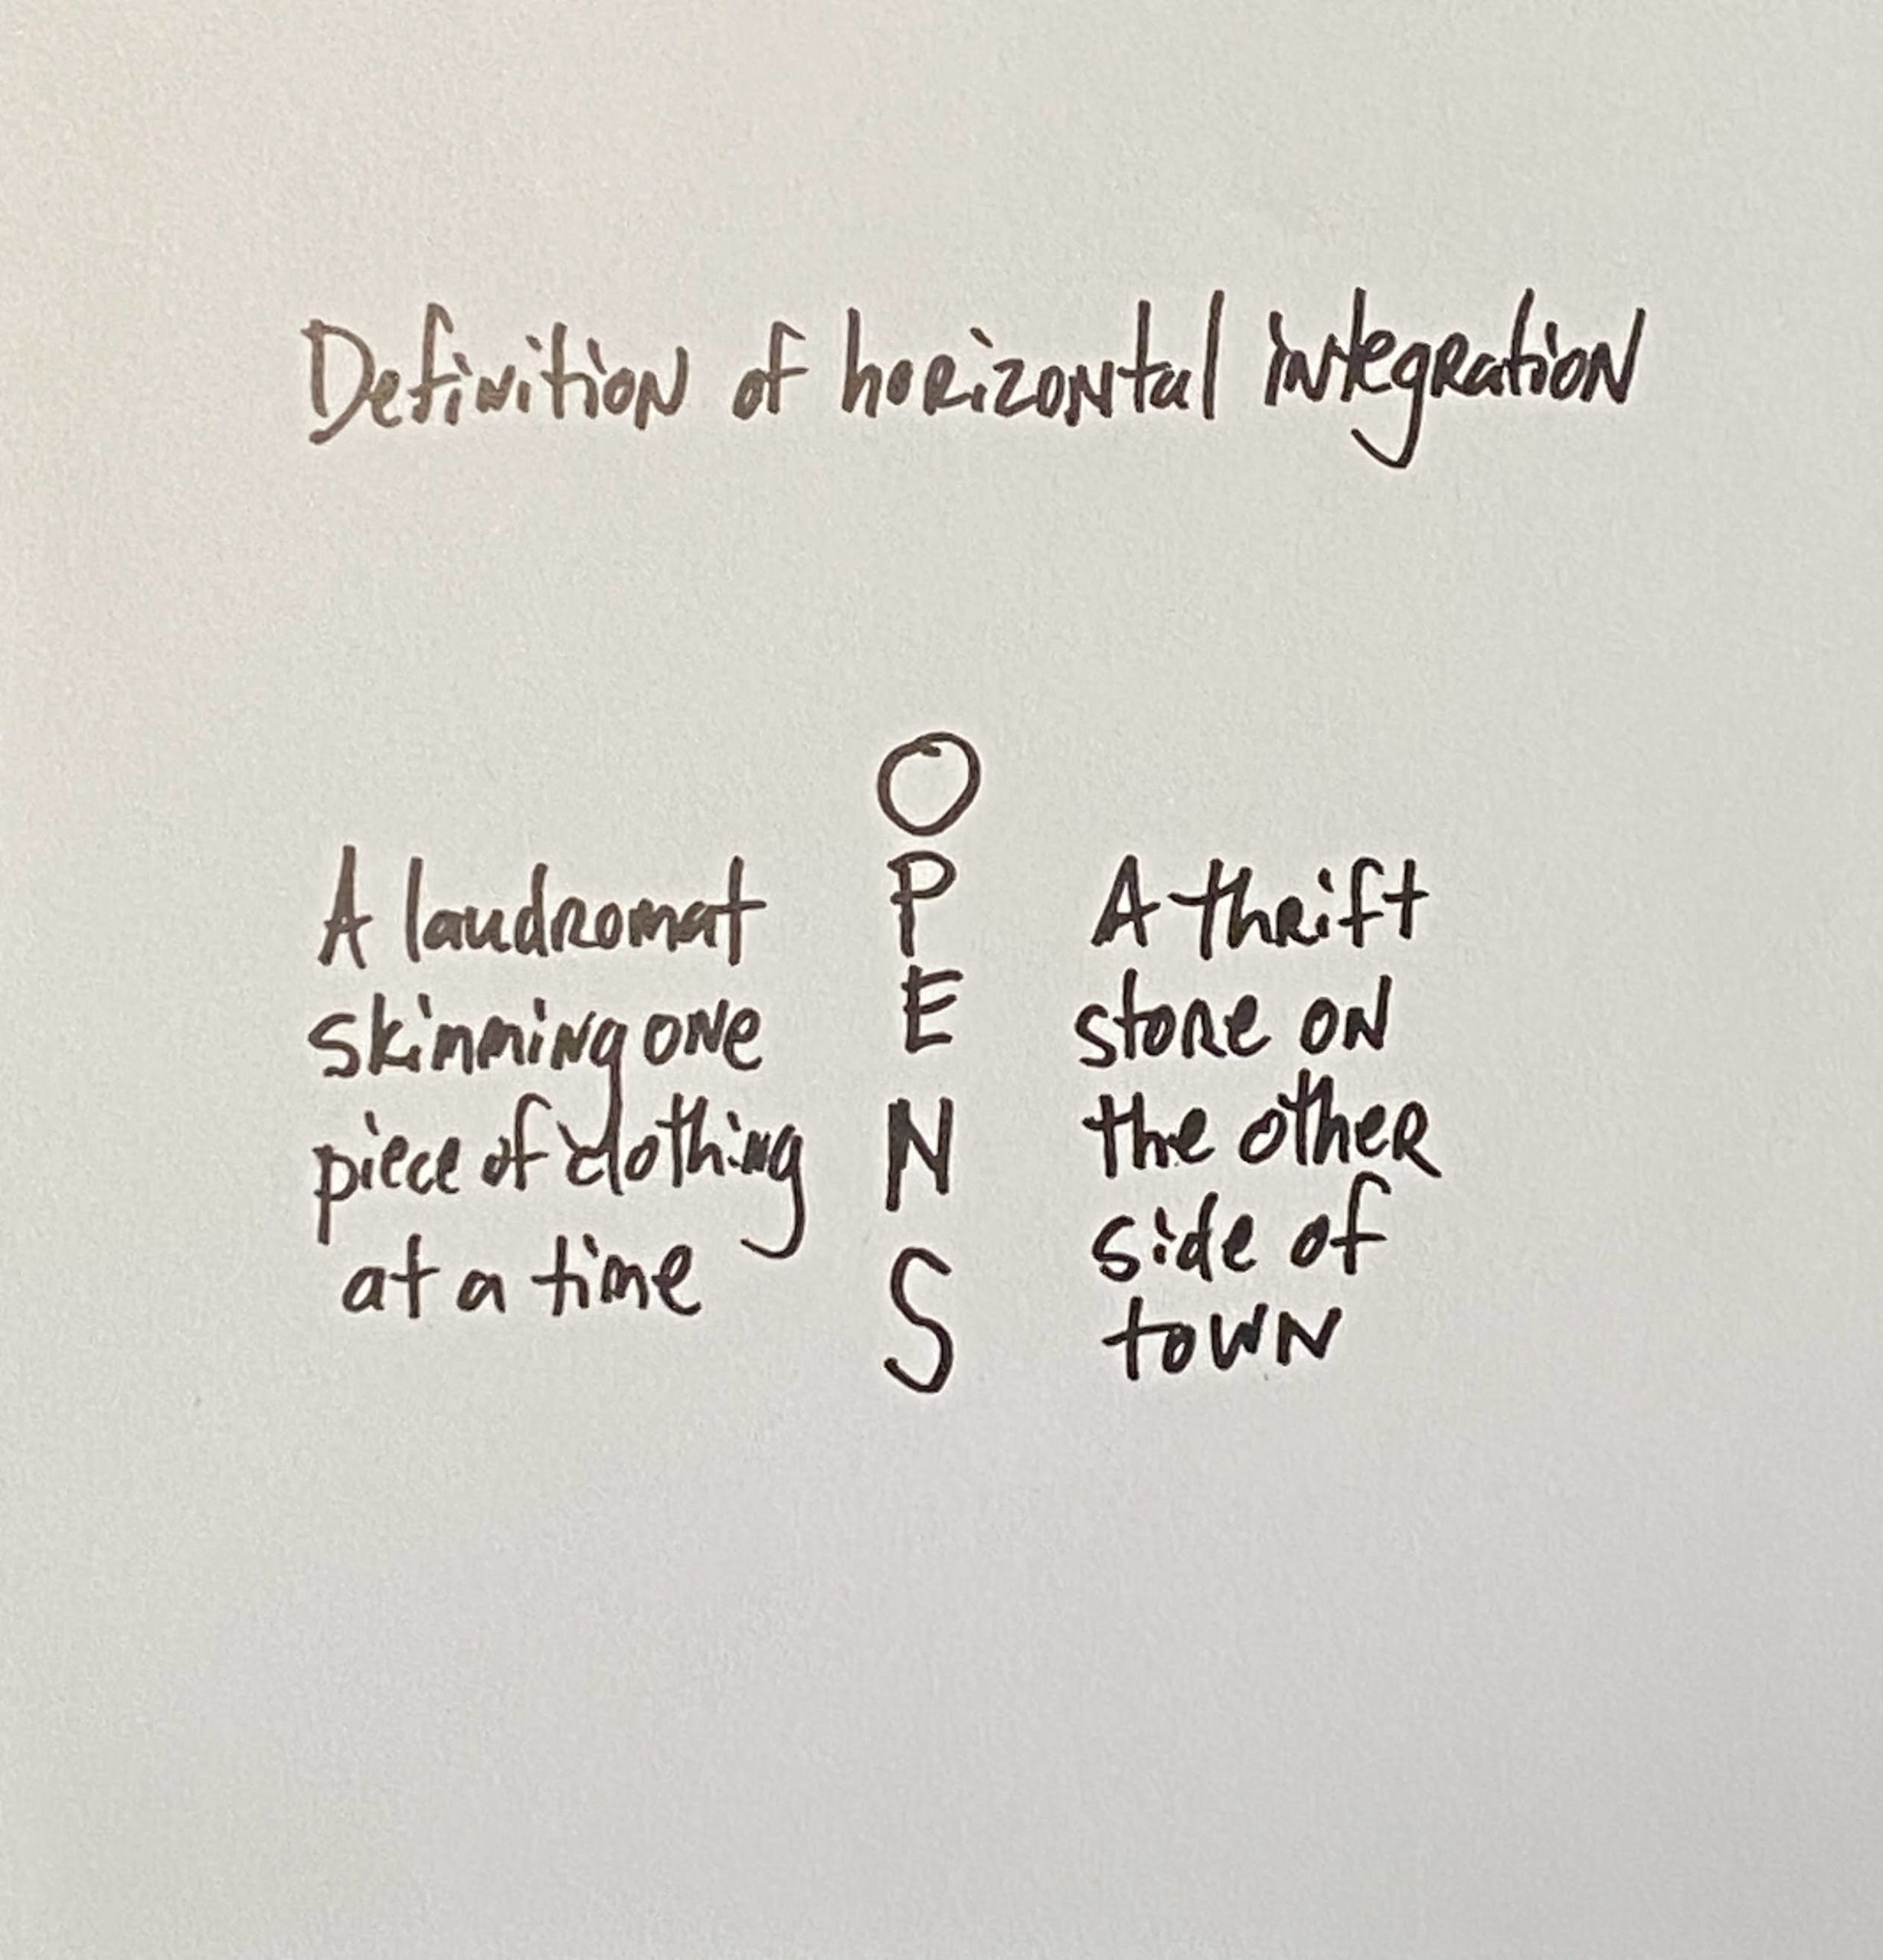 Definition of horizontal integration
A laudromat
skinming one
piece of clothing
at a time
O
P
E
N
S
A thrift
store on
the other
side of
town